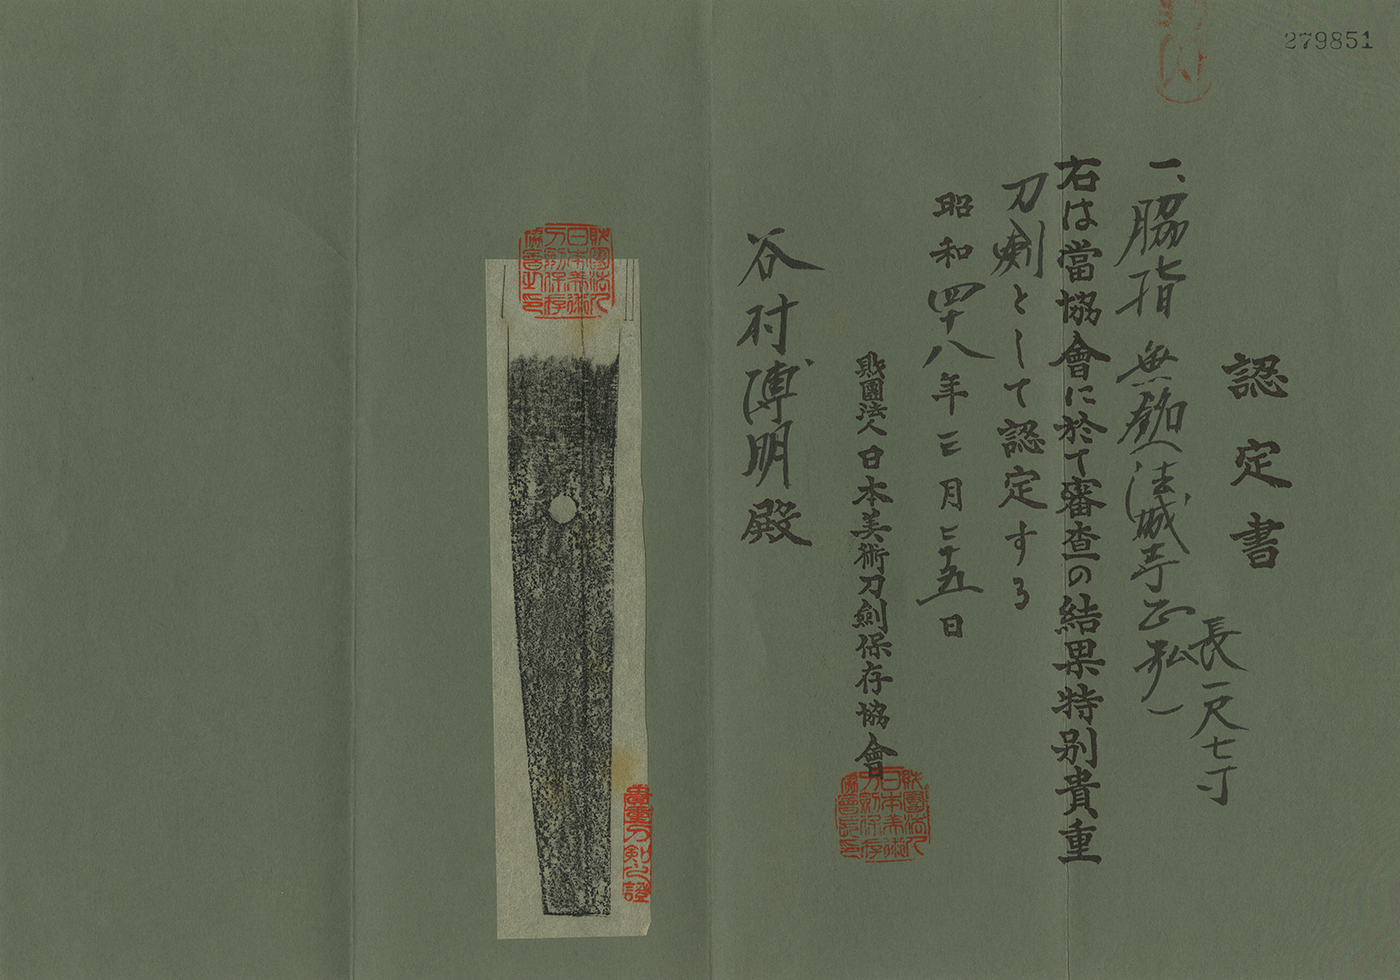 279851
認定書
一、脇指 無銘（法城寺正弘）
長一尺七寸
右は當協會に於て審査の結果特別貴重
刀劍として認定する
昭和四十八年三月二十五日
財團法人日本美術刀劍保存協會
財團法人日本美術刀劍保存協會長印
谷村博明殿
財團法人日本美術刀劍保存協會之印
貴重刀剣之證